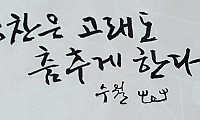 찬은 고래도
춤추게 한다
수월